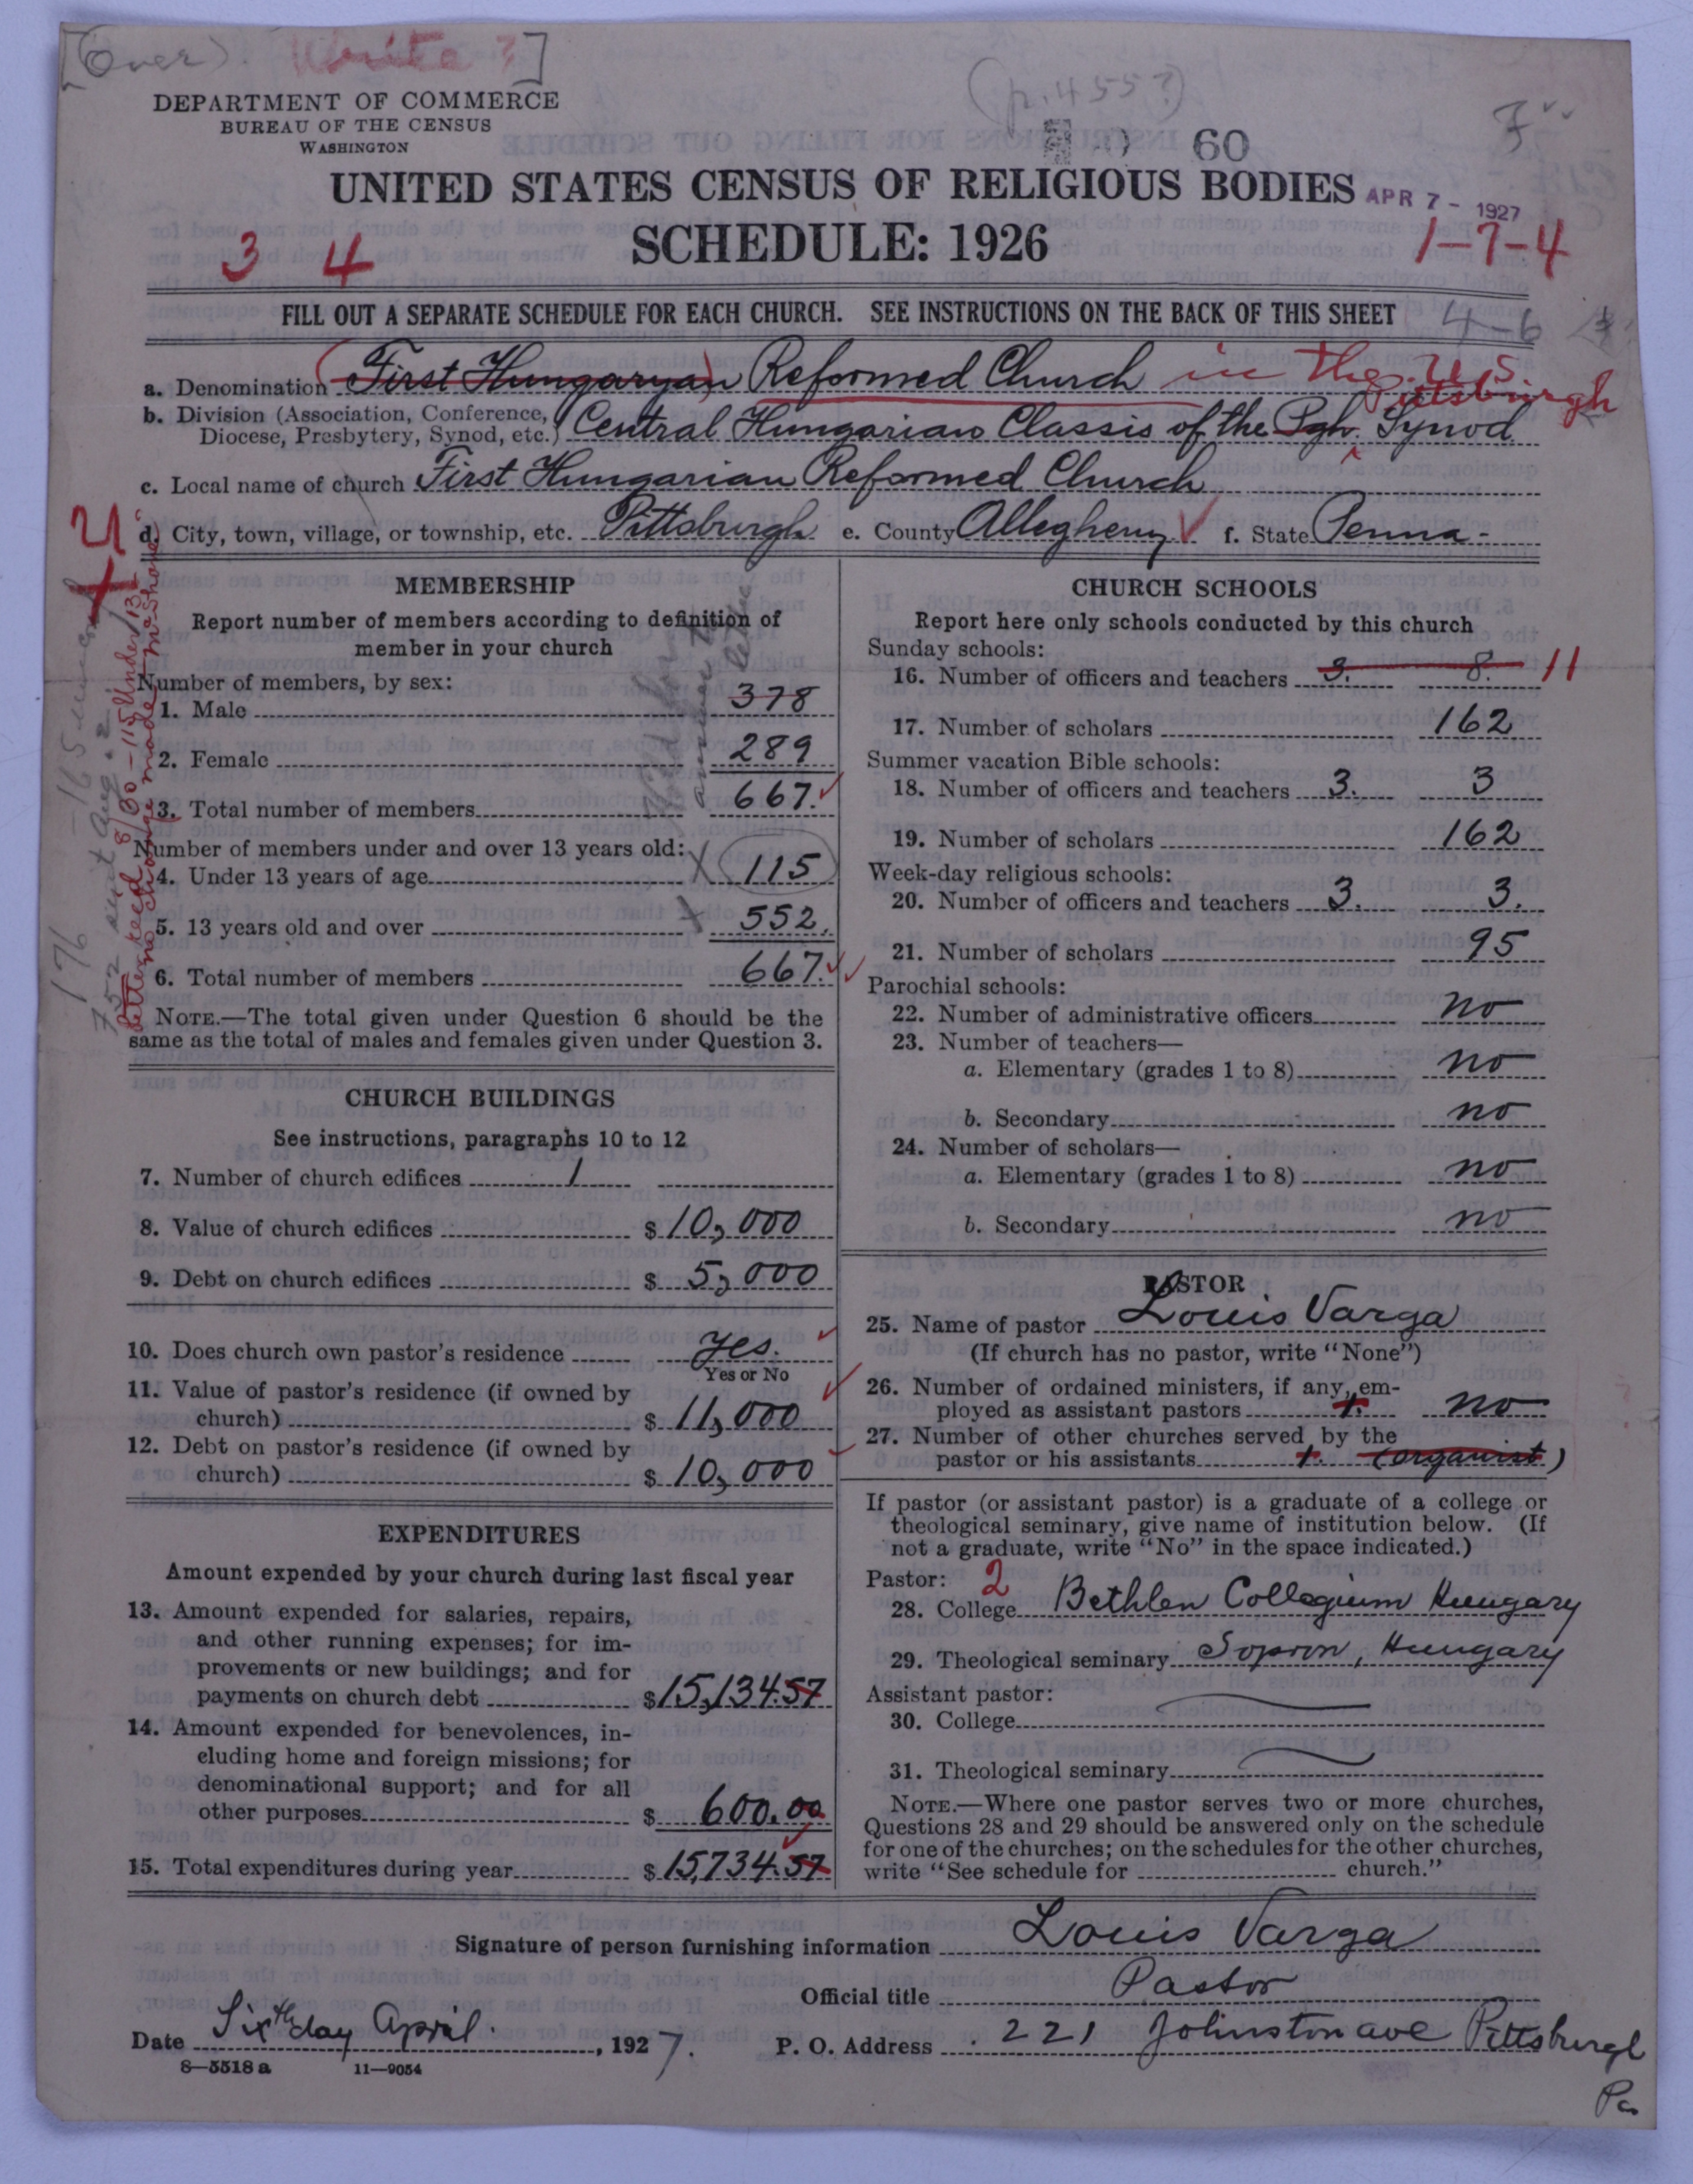 [Over). Write ?]
(p. 455?)
DEPARTMENT OF COMMERCE
BUREAU OF THE CENSUS
WASHINGTON
60
UNITED STATES CENSUS OF RELIGIOUS BODIES
APR 7 - 1927
SCHEDULE: 1926
3 4
1-7-4
FILL OUT A SEPARATE SCHEDULE FOR EACH CHURCH. SEE INSTRUCTIONS ON THE BACK OF THIS SHEET
4-6
a. Denomination (First Hungaryan) Reformed Church in the U.S.
Pittsburgh
b. Division (Association, Conference,
Diocese, Presbytery, Synod, etc.) Central Hungarian Classis of the Pgh. Synod
c. Local name of church First Hungarian Reformed Church
d. City, town, village, or township, etc. Pittsburgh e. County Allegheny f. State Penna.
MEMBERSHIP
Report number of members according to definition of
member in your church
Number of members, by sex:
1. Male 378
2. Female 289
3. Total number of members 667.
Number of members under and over 13 years old:
4. Under 13 years of age 115
5. 13 years old and over 552.
6. Total number of members 667.
NOTE.—The total given under Question 6 should be the
same as the total of males and females given under Question 3.
letter rec'd 8/30-115 under 13
no change made
176
CHURCH BUILDINGS
See instructions, paragraphs 10 to 12
7. Number of church edifices 1
8. Value of church edifices $10,000
9. Debt on church edifices $5,000
10. Does church own pastor's residence yes.
Yes or No
11. Value of pastor's residence (if owned by
church) $11,000
12. Debt on pastor's residence (if owned by
church) $10,000
EXPENDITURES
Amount expended by your church during last fiscal year
13. Amount expended for salaries, repairs,
and other running expenses; for im-
provements or new buildings; and for
payments on church debt $15,134.57
14. Amount expended for benevolences, in-
cluding home and foreign missions; for
denominational support; and for all
other purposes $600.00
15. Total expenditures during year $15,734.57
CHURCH SCHOOLS
Report here only schools conducted by this church
Sunday schools:
16. Number of officers and teachers 3. 8. 11
17. Number of scholars 162
Summer vacation Bible schools:
18. Number of officers and teachers 3. 3
19. Number of scholars 162
Week-day religious schools:
20. Number of officers and teachers 3. 3.
21. Number of scholars 95
Parochial schools:
22. Number of administrative officers no
23. Number of teachers—
a. Elementary (grades 1 to 8) no
b. Secondary no
24. Number of scholars—
a. Elementary (grades 1 to 8) no
b. Secondary no
PASTOR
25. Name of pastor Louis Varga
(If church has no pastor, write "None")
26. Number of ordained ministers, if any, em-
ployed as assistant pastors 1. no
27. Number of other churches served by the
pastor or his assistants 1. (organist)
If pastor (or assistant pastor) is a graduate of a college or
theological seminary, give name of institution below. (If
not a graduate, write "No" in the space indicated.)
Pastor: 2
28. College Bethlen Collegium Hungary
29. Theological seminary Sopron, Hungary
Assistant pastor:
30. College
31. Theological seminary
NOTE.—Where one pastor serves two or more churches,
Questions 28 and 29 should be answered only on the schedule
for one of the churches; on the schedules for the other churches,
write "See schedule for church."
Signature of person furnishing information Louis Varga
Official title Pastor
Date Sixth day April., 1927. P. O. Address 221 Johnston ave Pittsburgh
Pa
8—5518 a 11—9054